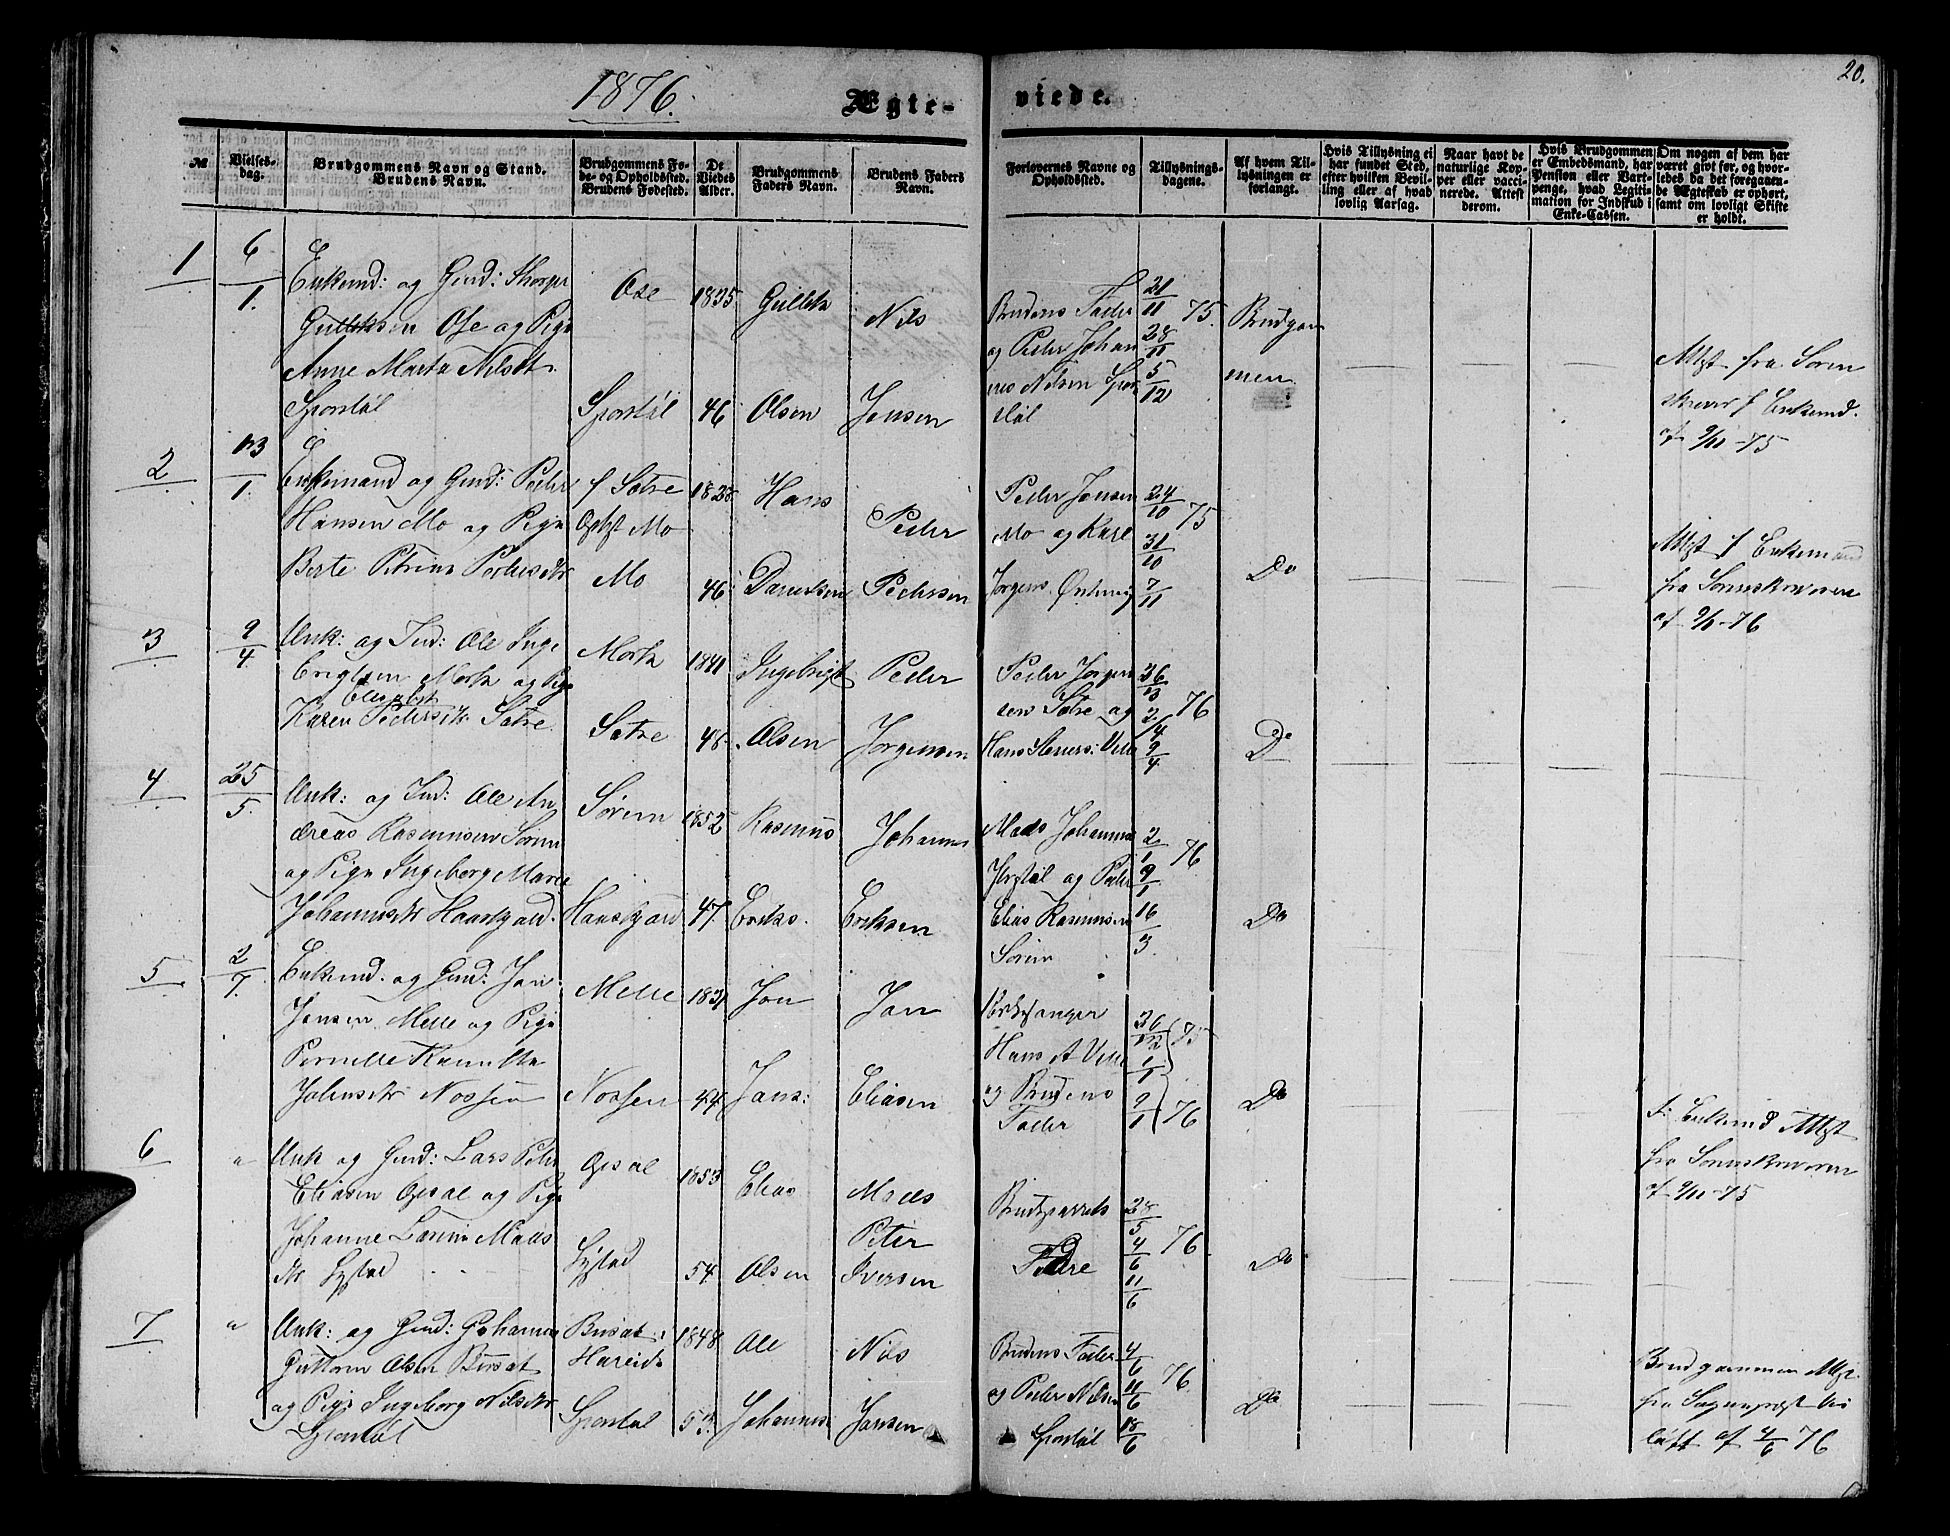 1876.
Ægte-
viede.
20.
№
Vielses-
dag.
Brudgommens Navn og Stand.
Brudens Navn.
Brudgommens Fø-
de- og Opholdssted.
Brudens Fødested.
De
Viedes
Alder.
Brudgommens
Faders Navn.
Brudens Faders
Navn.
Forlovernes Navne og
Opholdssted.
Tillysnings-
dagene.
Af hvem Til-
lysningen er
forlangt.
Hvis Tillysning ei
har fundet Sted,
efter hvilken Bevil-
ling eller af hvad
lovlig Aarsag.
Naar havt de
naturlige Kop-
per eller vacci-
nerede. Attest
derom.
Hvis Brudgommen
er Embedsmand, har
Pension eller Vart-
penge, hvad Legiti-
mation for Indskud i
Enke-Cassen.
Om nogen af dem har
været gift før, og hvor-
ledes da det foregaaen-
de Ægteskab er ophørt,
samt om lovligt Skifte
er holdt.
1
6/1.
Enkemd: og Gmd:
Gulleksen Ose og Pige
Anne Marta Nilsdt.
Sporstøl
Ose
Sporstøl
1835
46
Gullek
Olsen
Nils
Jensen
Brudens Fader
og Peder Johan
nes Nilsen Spor
støl
21/11 75.
28/11
5/12
Brudgom
men
Attest fra Soren
skriver f Enkemd.
af 9/11-75
2
13/1.
Enkemand og Gmd: Peder
Hansen Mo og Pige
Berte Petrine Pedersdtr
f Sætre
Opht Mo
Mo
1828
46
Hans
Danielsen
Peder
Pedersen
Peder Jensen
Mo og Karl
Jørgens.
24/10 75
31/10
7/11
Do
Attst f Enkemand
fra Sorenskriveren
3
9/4
Unk: og Ind: Ole Inge
brigtsen Mork og Pige
Elisabet
Karen Pedersdtr Sætre
Mork
Sætre
1841
48
Ingebrigt
Olsen
Peder
Jørgensen
Peder Jørgen
sen Sætre og
Hans
26/3
2/4 76
9/4
Do
4
25/5.
Unk: og Ind: Ole An
dreas Rasmussen Sørem
og Pige Ingeborg Marie
Johannesdtr Haaskjold.
Sørem
1852
47
Rasmus
Eriks.
Johannes
Eriksen
Mads Johannes
og Peder
Elias Rasmussen
Sørem
2/1 76
9/1
16/
Do
5
2/7.
Enkemd. og Gmd: Jon
Jensen Melle og Pige
Pernille
Jonsdtr Nossen
Melle
Nossen
1831
44
Jon
Jans:
Jon
Eliasen
Kirkesanger
Hans A Velle
og Brudens
Fader
26/12 75
1/1
9/1 76
Do
f: Enkemd Attst
fra Sorenskriveren
af 9/11-75
6
"
Unk og Gmd: Lars Peter
Eliasen Gjsdal og Pige
Johanne Lovine Mads
dtr Lystad
Lystad
1853
54
Elias
Olsen
Mads
Peter
Iversen
Brudeparrets
Fædre
28/5
4/6 76
11/6
Do
7
"
Unk: og Gmd: Johannes
Guttorm Olsen
og Pige Ingeborg Nilsdtr
Sporstøl
Hareids
Sporstøl
1848
53.
Ole
Johannes.
Nils
Jansen
Brudens Fader
og Peder Nilsen
Sporstøl
4/6
11/6 76.
18/6
Do
Brudgommen Attst.
fra Sognepræst
af 4/6 76